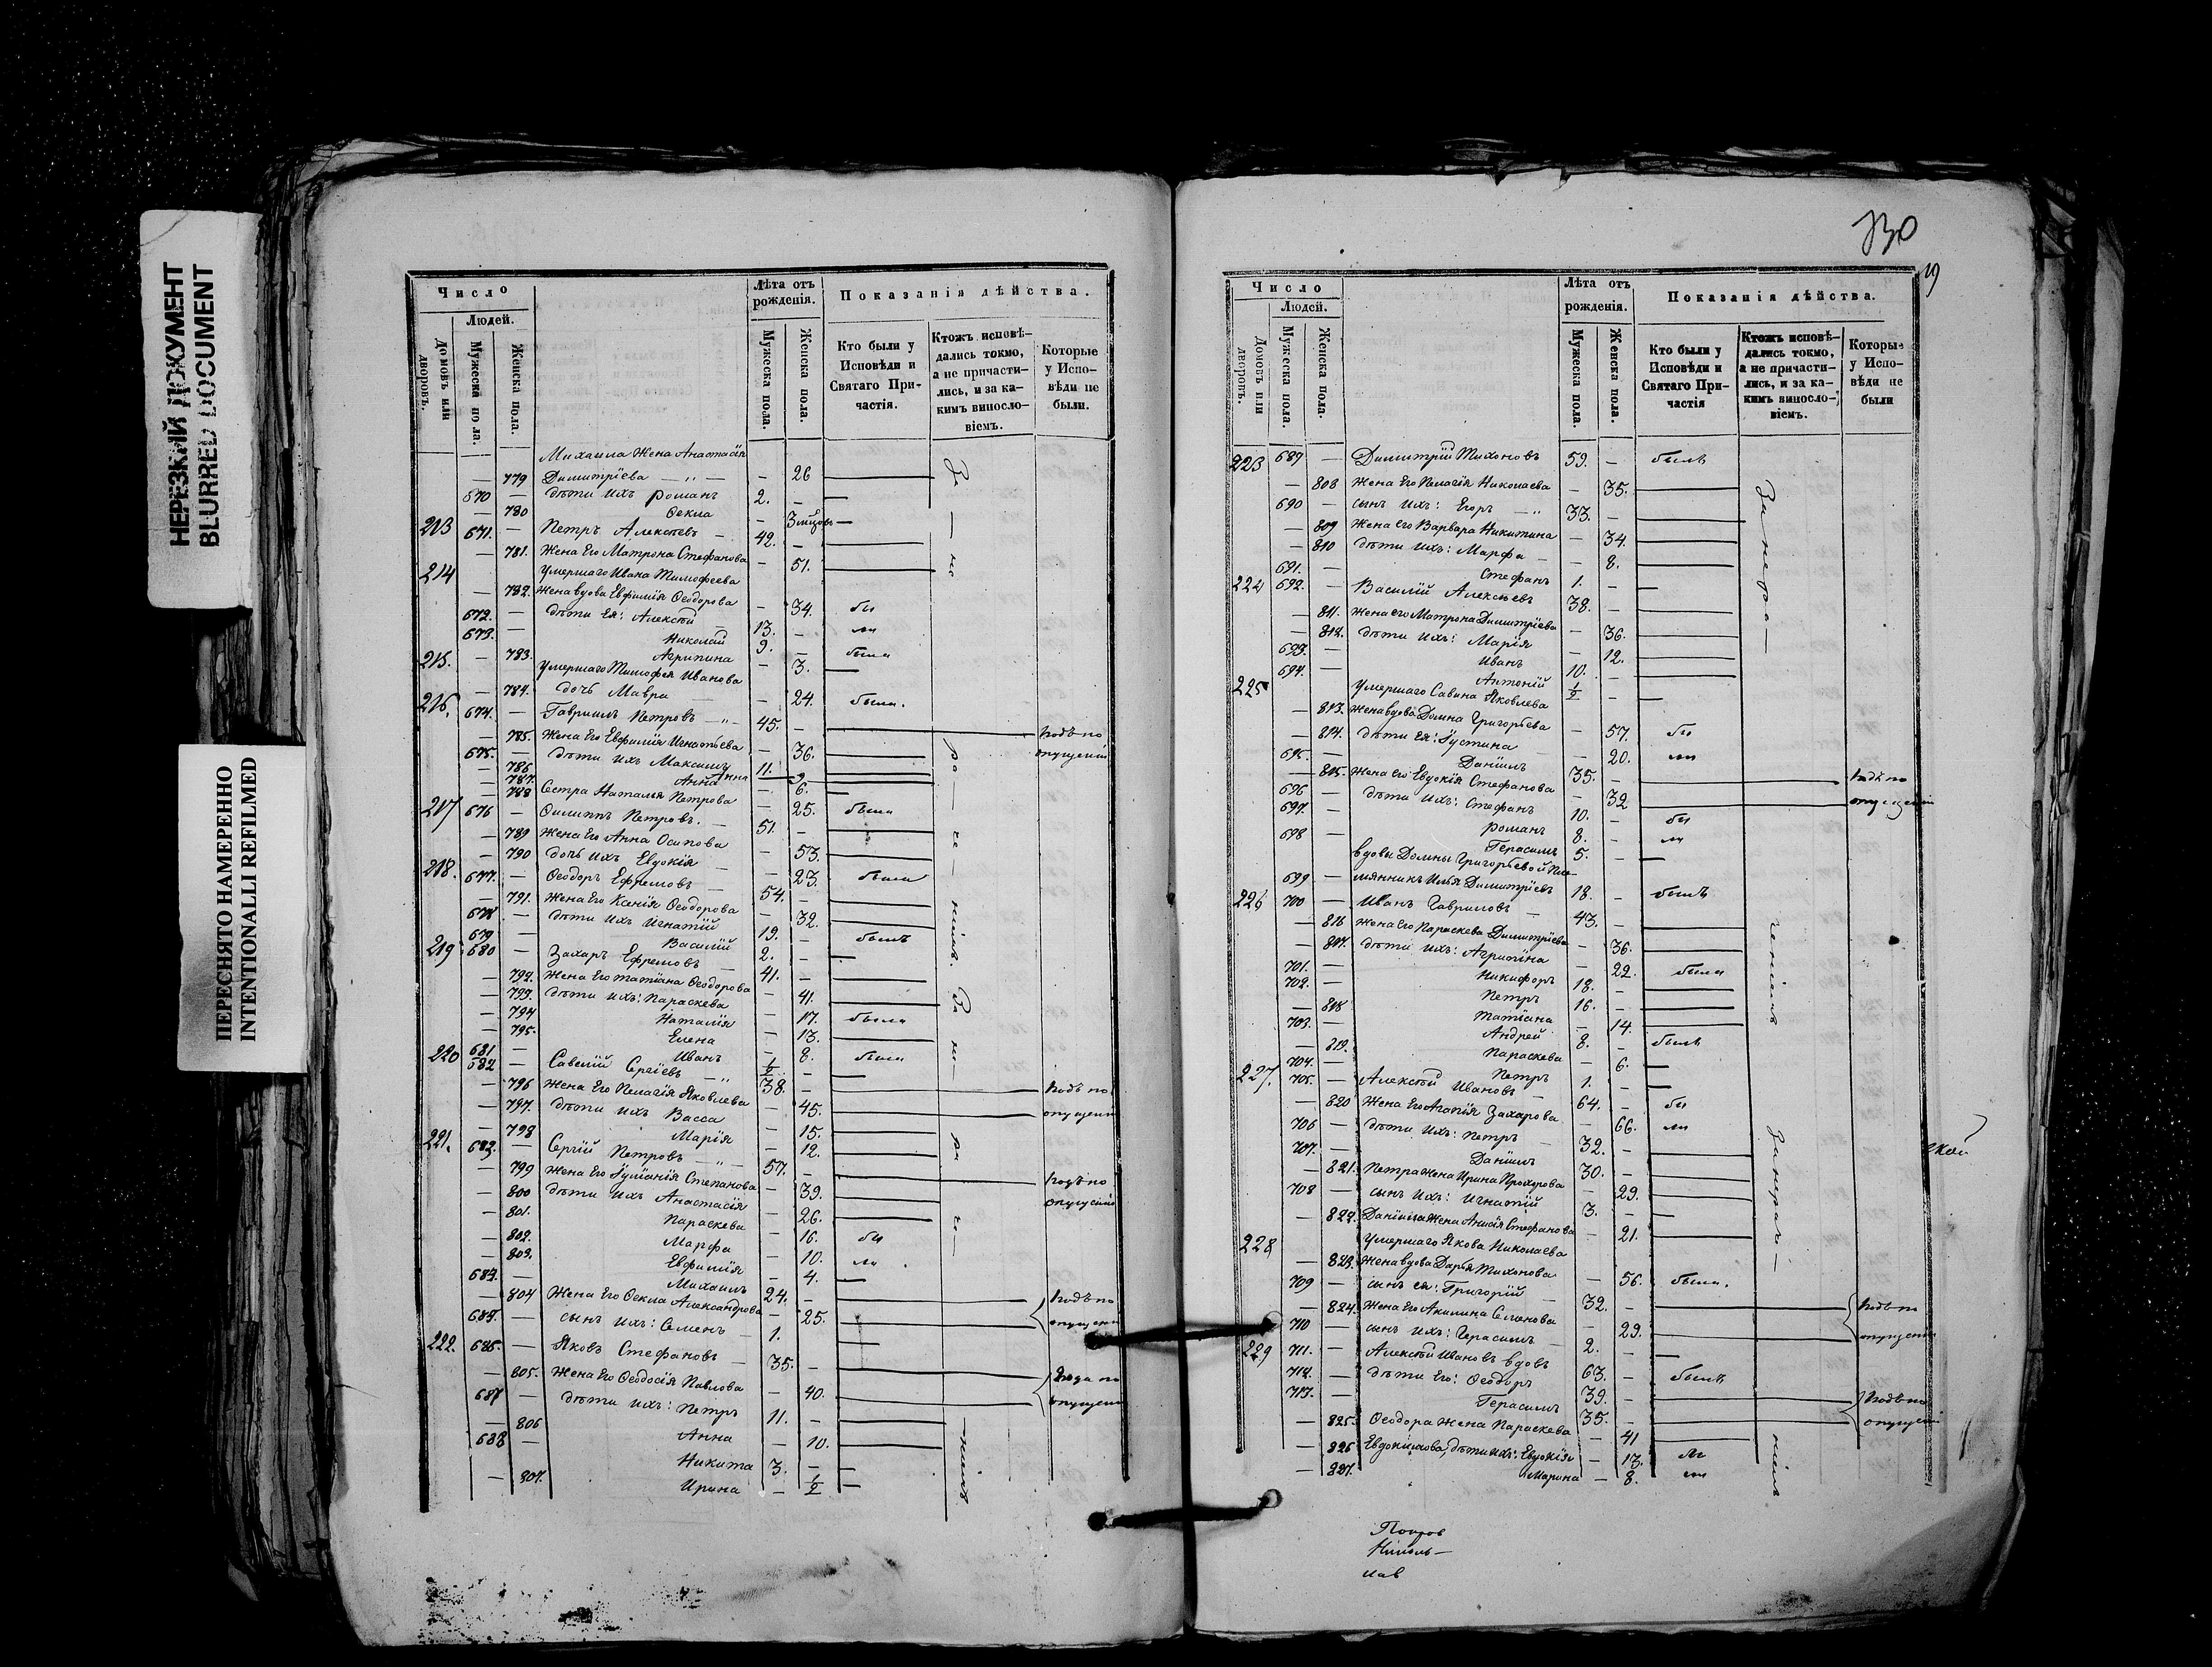 НЕРЕЗКИЙ ДОКУМЕНТ
BLURRED DOCUMENT
ПЕРЕСНЯТО НАМЕРЕННО
INTENTIONALLI REFILMED
Число
Людей.
Домовъ или дворовъ.
Мужеска пола.
Женска пола.
Лѣта отъ рожденія.
Мужеска пола.
Женска пола.
Показанія дѣйства.
Кто были у Исповѣди и Святаго Причастія.
Ктожъ исповѣдались токмо, а не причастились, и за какимъ винословіемъ.
Которые у Исповѣди не были.
Михаила Жена Анастасія
779 Димитріева — 26
670 — дѣти ихъ Романъ 2.
— 780 Ѳекла — 3
213 671. — Петръ Алексѣевъ 42. —
— 781. Жена Его Матрона Стефанова — 51.
214 Умершаго Ивана Тимофеева
— 782. Жена вдова Евфимія Ѳеодорова — 34. бы
672. — дѣти Ея: Алексѣй 13. — ли
673. — Николай 9. —
— 783. Агрипина — 3. была
215. Умершаго Тимофея Иванова
— 784. дочь Мавра — 24. была.
216. 674. — Гавриилъ Петровъ 45. —
— 785. Жена Его Евфимія Игнатьева — 36.
675. — дѣти ихъ Максимъ 11.
— 786 Анна — 9
— 787. Анна — 6.
— 788 Сестра Наталья Петрова — 25. была
217 676 — Филиппъ Петровъ. 51. —
— 789 Жена Его Анна Осипова — 53.
— 790 дочь ихъ Евдокія — 23. была
218. 677. — Ѳеодоръ Ефремовъ 54. —
— 791. Жена Его Ксенія Ѳеодорова — 32.
678 — дѣти ихъ Игнатій 19. — былъ
679 — Василій 2. —
219 680 — Захаръ Ефремовъ 41. —
— 792. Жена Его Татіана Ѳеодорова — 41.
— 793. дѣти ихъ: Параскева — 17. была
— 794 Наталія — 13.
— 795. Елена — 8. была
681 — Иванъ ½ —
220 682 — Савелій Сергіевъ 38. —
— 796 Жена Его Пелагія Яковлева — 45.
— 797. дѣти ихъ Васса — 15.
— 798 Марія — 12.
221. 683. — Сергій Петровъ 57. —
— 799 Жена Его Іуліанія Степанова — 39.
— 800 дѣти ихъ Анастасія — 26.
— 801. Параскева — 16. бы
— 802. Марфа — 10. ли
— 803. Евфимія — 4.
684. — Михаилъ 24. —
— 804 Жена Его Ѳекла Александрова — 25.
685. — сынъ ихъ: Семенъ 1.
222. 686. — Яковъ Стефановъ 35. —
— 805. Жена Его Ѳеодосія Павлова — 40.
687 — дѣти ихъ: Петръ 11. —
— 806 Анна — 10.
688 — Никита 3. —
— 807. Ирина — ½
19
Число
Людей.
Домовъ или дворовъ.
Мужеска пола.
Женска пола.
Лѣта отъ рожденія.
Мужеска пола.
Женска пола.
Показанія дѣйства.
Кто были у Исповѣди и Святаго Причастія
Ктожъ исповѣдались токмо, а не причастились, и за какимъ винословіемъ.
Которые у Исповѣди не были
223 689 — Димитрій Тихоновъ 59. — былъ
— 808 Жена Его Пелагія Николаева — 35.
690 — сынъ ихъ: Егоръ 33. —
— 809 Жена Его Варвара Никитина — 34.
— 810 дѣти ихъ: Марфа — 8.
691. — Стефанъ 1. —
224 692. — Василій Алексѣевъ 38. —
— 811. Жена его Матрона Димитріева — 36.
— 812. дѣти ихъ: Марія — 12.
693. — Иванъ 10. —
694. — Антоній ½ —
225 Умершаго Савина Яковлева
— 813. Жена вдова Домна Григорьева — 57. бы
— 814. дѣти Ея: Іустина — 20. ли
695. — Даніилъ 35. —
— 815. Жена Его Евдокія Стефанова — 32
696 — дѣти ихъ: Стефанъ 10. — бы
697. — Романъ 8. — ли
698 — Герасимъ 5. —
вдовы Домны Григорьевой пле-
699 — мянникъ Илья Димитріевъ 18. — былъ
226 700 — Иванъ Гавриловъ 43. —
— 816 Жена Его Параскева Димитріева — 36.
— 817. дѣти ихъ: Агрипина — 22. была
701. — Никифоръ 18. —
702. — Петръ 16. —
— 818 Татіана — 14.
703. — Андрей 8. — былъ
— 819. Параскева — 6.
704. — Петръ 1. —
227. 705. — Алексѣй Ивановъ 64. — бы
— 820 Жена Его Агапія Захарова — 66. ли
706 — дѣти ихъ: Петръ 32. —
707. — Даніилъ 30. —
— 821. Петра Жена Ирина Прохорова — 29.
708 — сынъ ихъ: Игнатій 3. —
— 822. Даніила Жена Анисія Стефанова — 21.
228 Умершаго Якова Николаева
— 823. Жена вдова Дарья Тихонова — 56. была.
709 — сынъ ея: Григорій 32. —
— 824. Жена Его Акилина Семенова — 29.
710 — сынъ ихъ: Герасимъ 2. —
229 711. — Алексѣй Ивановъ вдовъ 63. — былъ
712. — дѣти Его: Ѳеодоръ 39. —
713. — Герасимъ 35. —
— 825. Ѳеодора Жена Параскева — 41
— 826 Евдокимова, дѣти ихъ: Евдокія — 13.
— 827. Марина — 8.